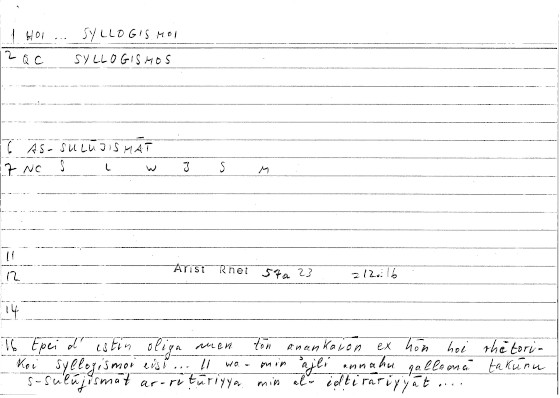 1 HOI ... SYLLOGISMOI
2 QC SYLLOGISMOS
6 AS-SULŪJISMĀT
7 NC S L W J S M
11
12 Arist Rhet 57a 23 =12:16
14
16 Epei d' estin oliga men tōn anankaiōn ex hōn hoi rhētori-
koi syllogismoi eisi... || wa-min 'ajli annahu qallamā takūnu
s-sulūjismāt ar-rīṭūriyya min el-iḍtirāriyyāt ....